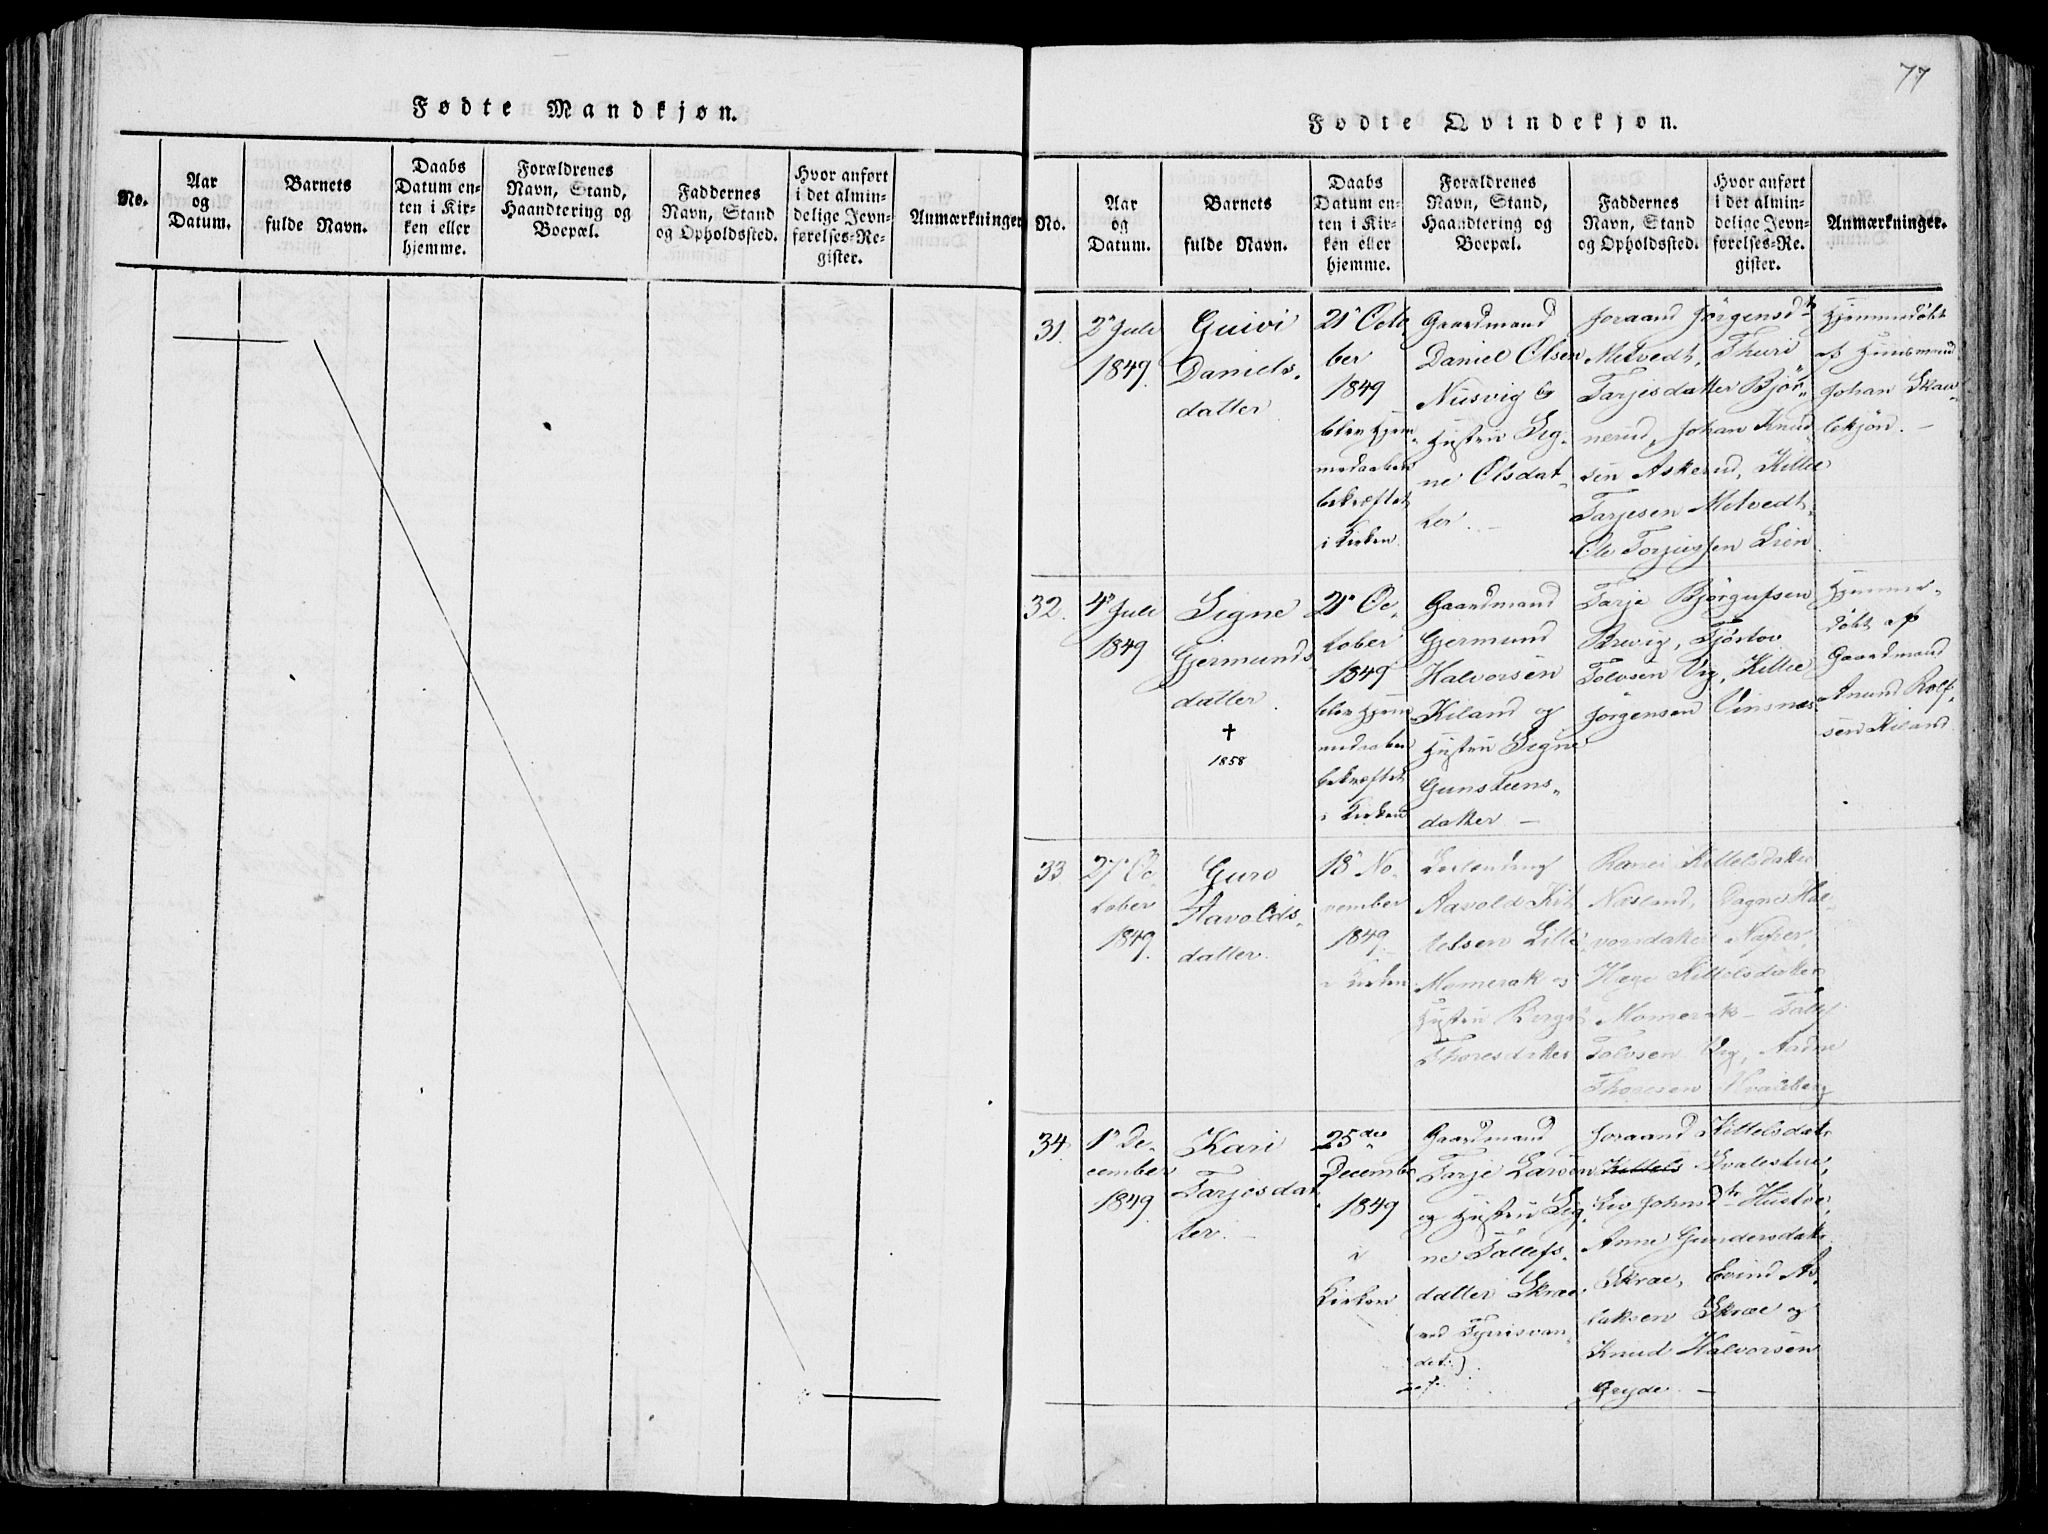 77
Fødte Mandkjøn.
No.
Aar
og
Datum.
Barnets
fulde Navn.
Daabs
Datum en-
ten i Kir-
ken eller
hjemme.
Forældrenes
Navn, Stand,
Haandtering og
Boepæl.
Faddernes
Navn, Stand
og Opholdssted.
Hvor anført
i det almin-
delige Jevn-
førelses-Re-
gister.
Anmærkninger
Fødte Qvindekjøn.
No.
Aar
og
Datum.
Barnets
fulde Navn.
Daabs
Datum en-
ten i Kir-
ken eller
hjemme.
Forældrenes
Navn, Stand,
Haandtering og
Boepæl.
Faddernes
Navn, Stand
og Opholdssted.
Hvor anført
i det almin-
delige Jevn-
førelses-Re-
gister.
Anmærkninger.
31.
2 Juli
1849.
Guivi
Daniels-
datter
21 Octo
ber
1849
blev Hjem-
medaaben
bekræftet
i Kirken
Gaardmand
Daniel Olsen
Nusvig og
Hustru Sig-
ne Olsdat-
ter. –
Joraand Jörgensdtr
Metvedt, Thuri
Tarjesdatter Björ-
nerud, Johan Knud-
sen Askerud, Kittel
Tarjesen Metvedt,
Ole Torjussen Lien
Hjemmedöbt
af Huusmand
Johan
32.
4 Juli
1849
Signe
Gjermunds
datter
✝
1858
21 Oc-
tober
1849
blev Hjem
medaaben
bekræftet
i Kirken
Gaardmand
Gjermund
Halvorsen
Kiland og
Hustru Signe
Gunsteens-
datter –
Tarje Björgufsen
Brevig, Tjöstov
Tolvsen Vig, Kittel
Jörgensen Vinsnes
Hjemme-
döbt af
Gaardmand
Anund Rolf-
sen Kiland
33
27 Oc-
tober
1849.
Guro
Aavolds-
datter.
18 No-
vember
1849
i Kirken
Leilending
Aavold Kit
telsen Lille
Momrak og
Hustru Berget
Thoresdatter
Kittelsdatter
Næsland, Dagne Hal-
vorsdatter
Hæge Kittelsdatter
Momerak – Tallef
Tolvsen Vig, Aadne
Thoresen Kvaleberg
34.
1 De-
cember
1849.
Kari
Tarjesdat
ter. –
25de
Decembr
1849
i
Kirken
Gaardmand
Tarje Larsen
og Hustru Sig-
ne Tallefs-
datter Skræe
(ved Tyrisvan-
det.)
Joraand Kittelsdatr
Kittels Svalestue,
Liv Johnsdtr Hustvet,
Anne Gundersdatr
Skræe, Evind As-
laksen Skræe og
Knud Halvorsen
Gryde –